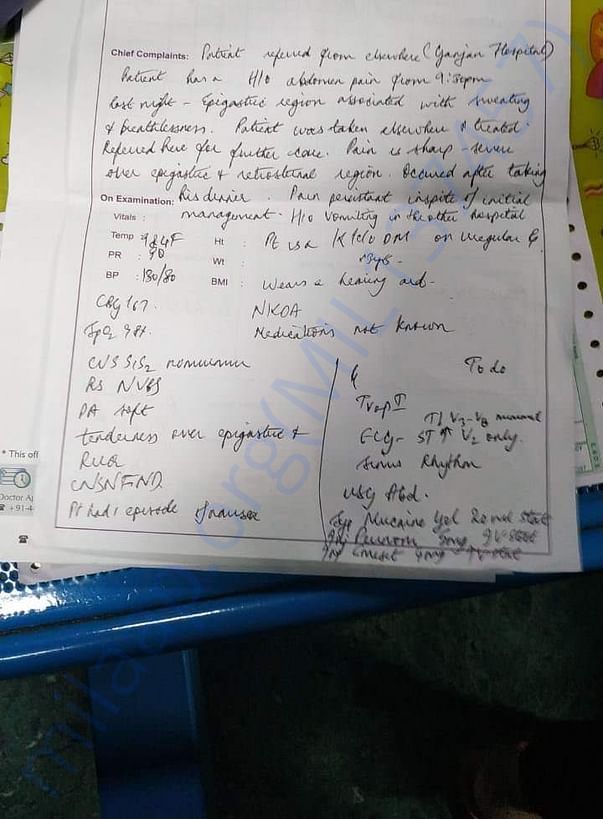 Chief Complaints: Patient referred from elsewhere (Ganjan Hospital)
Patient has a H/o abdomen pain from 9:30pm
last night - Epigastric region associated with sweating
& breathlessness. Patient was taken elsewhere & treated.
Referred here for further care. Pain is sharp - severe
over epigastric & retrosternal region. Occured after taking
On Examination: his dinner. Pain persistant inspite of initial
Vitals : management. H/o vomiting in the other hospital
Temp : 98.4F Ht : Pt is a K/c/o DM on irregular
PR : 90 Wt :
BP : 130/80 BMI : Wears a hearing aid-
CBG 167. NKDA
SpO2 98% Medications not known
CVS S1S2 To do
RS NVBS
PA soft Trop I
tenderness over epigastric & ECG- ST ↑ V2 only.
RUQ Sinus Rhythm
CNS NFND USG Abd.
Pt had 1 episode of nausea
Syp Mucaine gel 20ml stat
Inj Emeset 4mg IV stat
* This off
Doctor A
+91-4
milaap.org(MIL